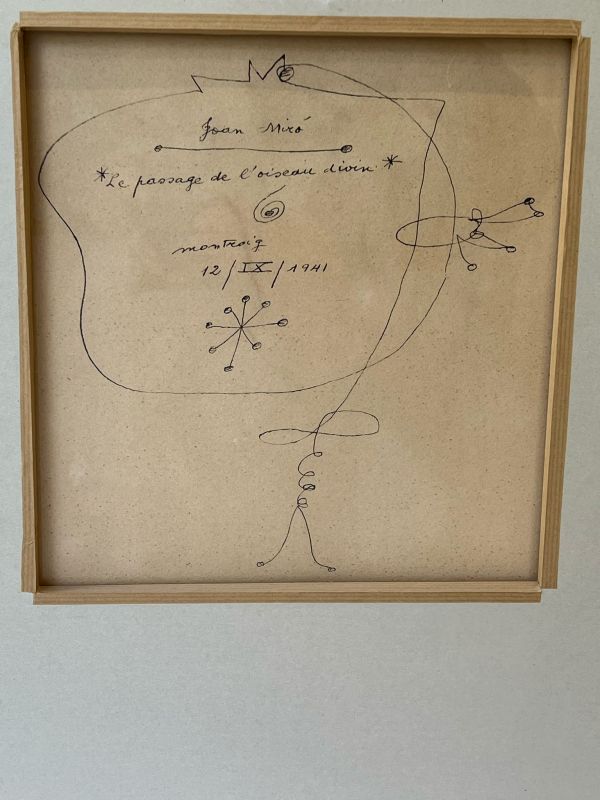 Joan Miró
*Le passage de l'oiseau divin*
montroig
12/IX/1941